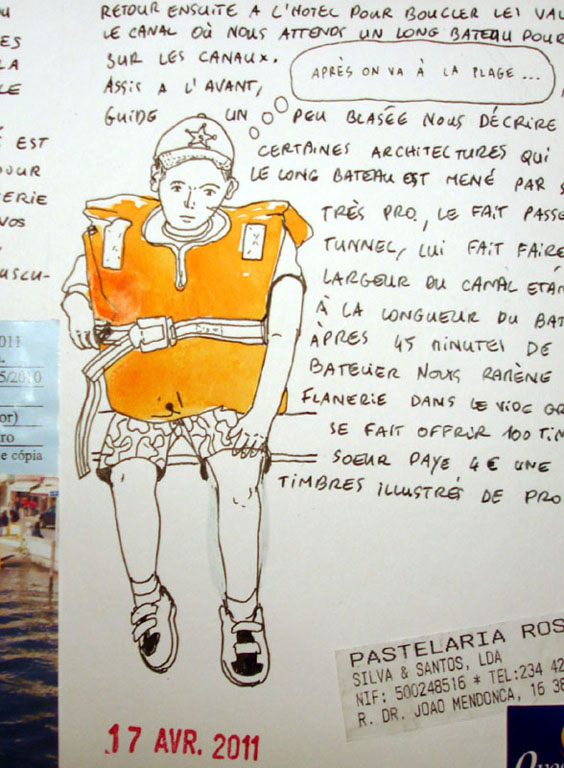 RETOUR ENSUITE A L'HOTEL POUR BOUCLER LES
LE CANAL OÙ NOUS ATTENDS UN LONG BATEAU POUR
SUR LES CANAUX.
APRÈS ON VA À LA PLAGE ...
ASSIS A L'AVANT,
GUIDE UN PEU BLASÉE NOUS DÉCRIRE
CERTAINES ARCHITECTURES QUI
LE LONG BATEAU EST MENÉ PAR
TRÈS PRO, LE FAIT
TUNNEL, LUI FAIT FAIRE
LARGEUR DU CANAL
À LA LONGUEUR DU
APRES 45 MINUTES DE
BATELIER NOUS RAMÈNE
FLANERIE DANS LE VIDE
SE FAIT OFFRIR 100
SOEUR PAYE 4 € UNE
TIMBRES ILLUSTRÉS DE
EST
VOS
2011
or)
ro
e cópia
PASTELARIA
SILVA & SANTOS, LDA
NIF: 500248516 * TEL:234
R. DR. JOAO MENDONCA, 16
17 AVR. 2011